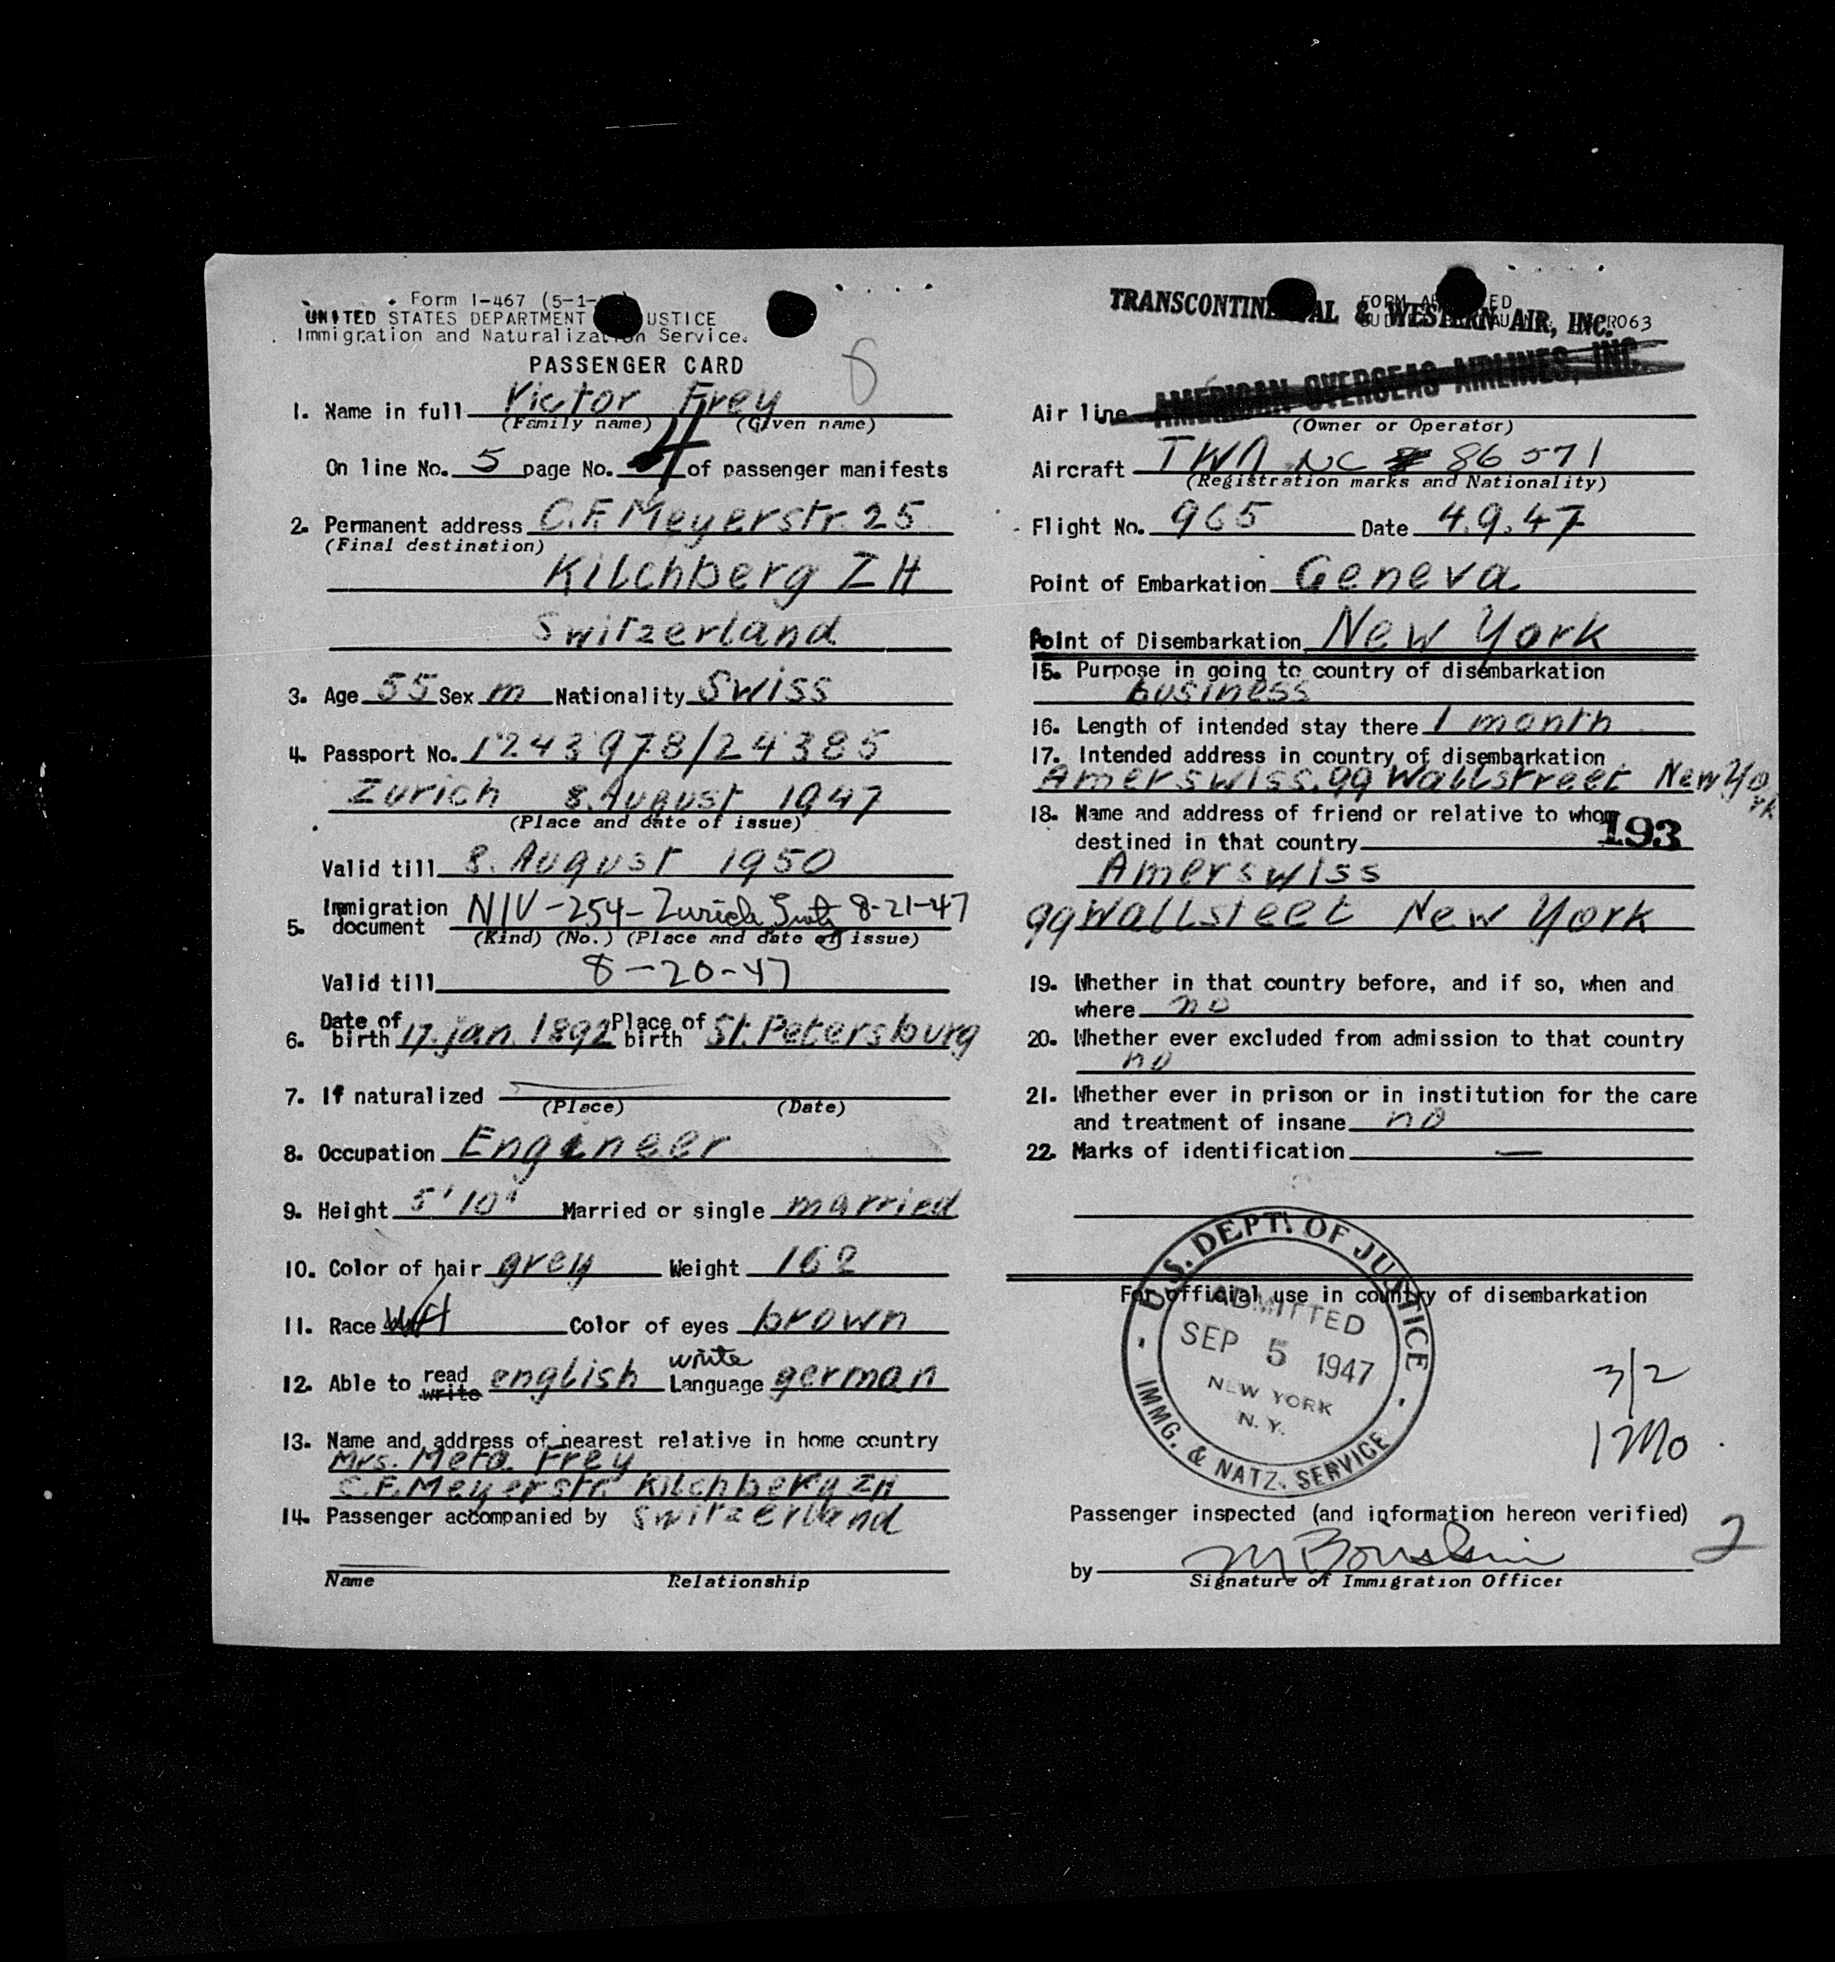 Form I-467 (5-1-
UNITED STATES DEPARTMENT USTICE
Immigration and Naturalization Service.
PASSENGER CARD
8
1. Name in full Victor Frey
(Family name) (Given name)
On line No. 5 page No. 4 of passenger manifests
2. Permanent address C.F. Meyerstr. 25
(Final destination)
Kilchberg ZH
Switzerland
3. Age 55 Sex m Nationality Swiss
4. Passport No. 1243978/24385
Zurich 8. August 1947
(Place and date of issue)
Valid till 8. August 1950
5. Immigration document NIV-254-Zurich Switz 8-21-47
(Kind) (No.) (Place and date of issue)
Valid till 8-20-47
6. Date of birth 17. jan. 1892 Place of birth St. Petersburg
7. If naturalized
(Place) (Date)
8. Occupation Engineer
9. Height 5'10" Married or single married
10. Color of hair grey Weight 162
11. Race Color of eyes brown
12. Able to read write english write Language german
13. Name and address of nearest relative in home country
Mrs. Meta Frey
C.F. Meyerstr. Kilchberg ZH
14. Passenger accompanied by Switzerland
Name Relationship
TRANSCONTINENTAL & WESTERN AIR, INC.
FORM AP ED
R063
Air line AMERICAN OVERSEAS AIRLINES, INC.
(Owner or Operator)
Aircraft TWA NC 86571
(Registration marks and Nationality)
Flight No. 965 Date 4.9.47
Point of Embarkation Geneva
Point of Disembarkation New York
15. Purpose in going to country of disembarkation
business
16. Length of intended stay there 1 month
17. Intended address in country of disembarkation
Amerswiss. 99 Wallstreet New York
18. Name and address of friend or relative to whom
destined in that country 193
Amerswiss
99 Wallsteet New York
19. Whether in that country before, and if so, when and
where no
20. Whether ever excluded from admission to that country
no
21. Whether ever in prison or in institution for the care
and treatment of insane no
22. Marks of identification —
For official use in country of disembarkation
U.S. DEPT. OF JUSTICE
ADMITTED
SEP 5 1947
NEW YORK
N.Y.
IMMG. & NATZ. SERVICE
3/2
1 Mo
Passenger inspected (and information hereon verified)
2
by
Signature of Immigration Officer